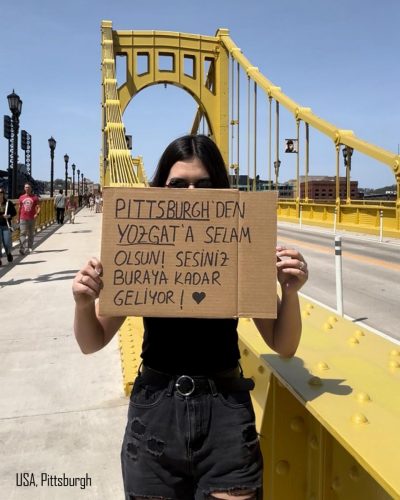 PITTSBURGH'DEN
YOZGAT'A SELAM
OLSUN! SESİNİZ
BURAYA KADAR
GELİYOR! ♥
USA, Pittsburgh